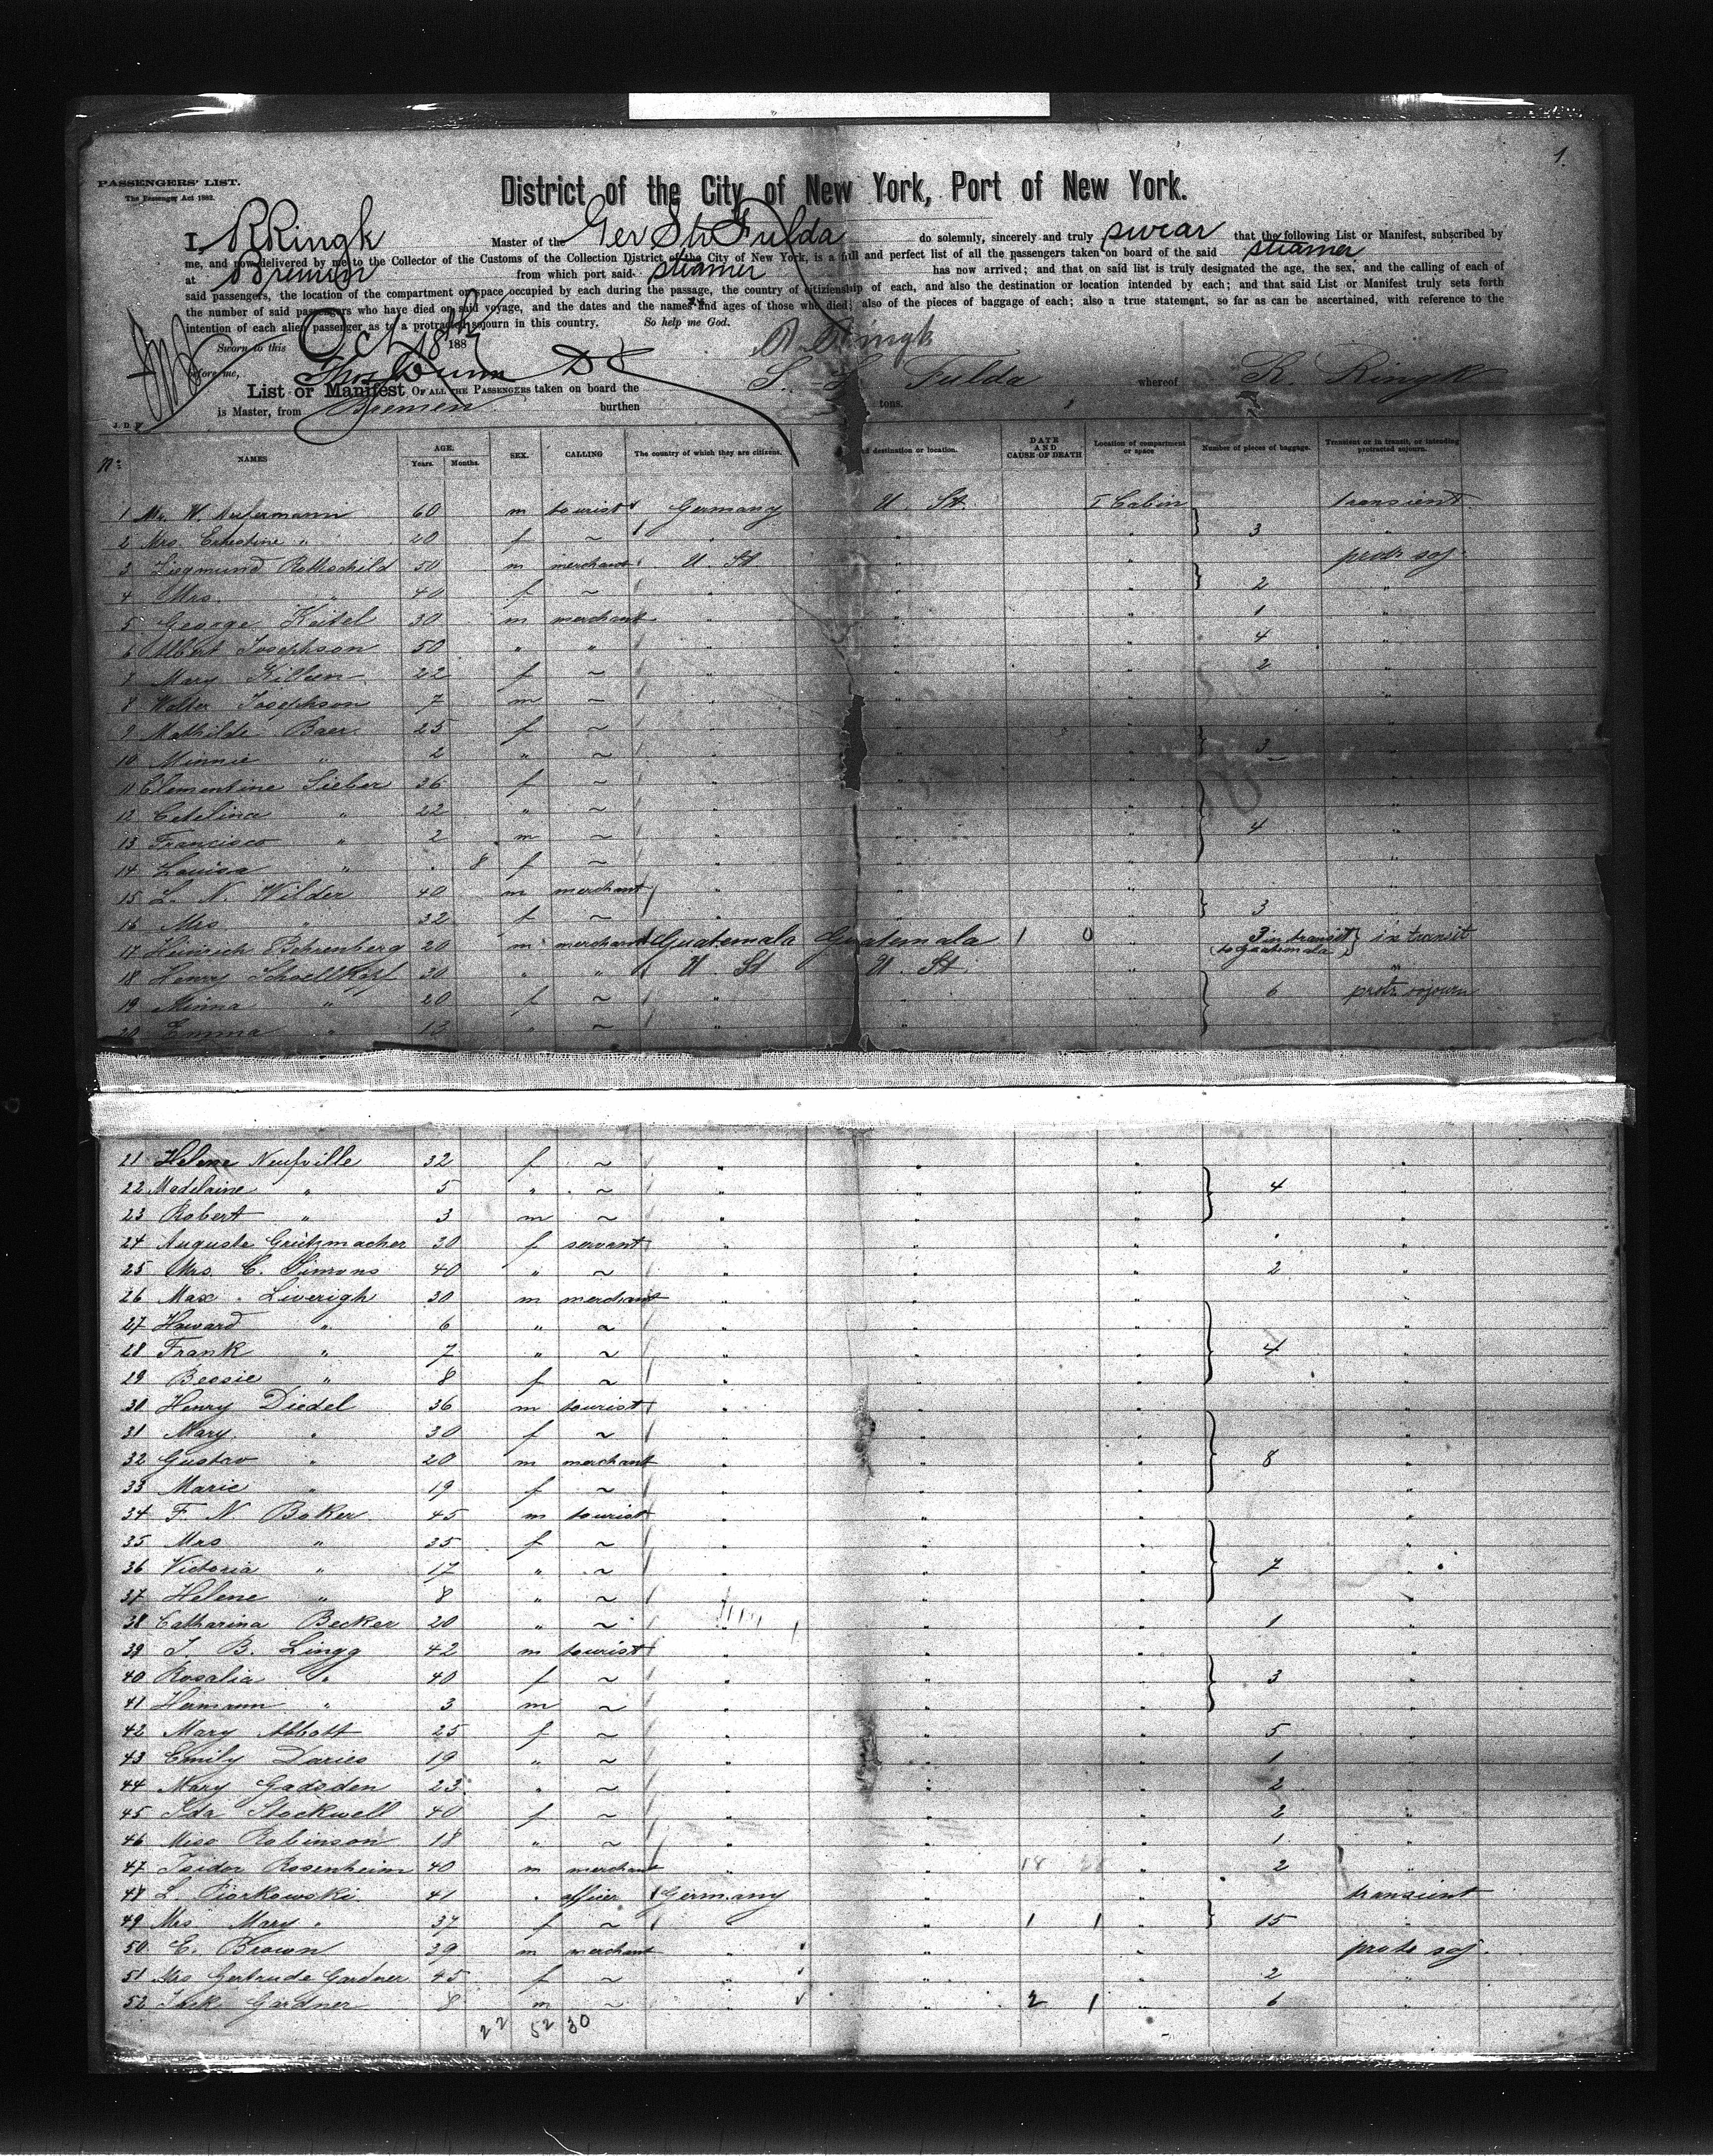 1.
PASSENGERS' LIST.
The Passenger Act 1882.
District of the City of New York, Port of New York.
I, R Ringk Master of the Ger Str Fulda do solemnly, sincerely and truly swear that the following List or Manifest, subscribed by
me, and now delivered by me to the Collector of the Customs of the Collection District of the City of New York, is a full and perfect list of all the passengers taken on board of the said steamer
at Bremen from which port said steamer has now arrived; and that on said list is truly designated the age, the sex, and the calling of each of
said passengers, the location of the compartment or space occupied by each during the passage, the country of citizenship of each, and also the destination or location intended by each; and that said List or Manifest truly sets forth
the number of said passengers who have died on said voyage, and the dates and the names and ages of those who died; also of the pieces of baggage of each; also a true statement, so far as can be ascertained, with reference to the
intention of each alien passenger as to a protracted sojourn in this country. So help me God.
Sworn to this Oct 18th 1887 R Ringk
before me, Thos Dunn
List or Manifest OF ALL THE PASSENGERS taken on board the S. S. Fulda whereof R Ringk
is Master, from Bremen burthen tons.
J. D.
No. NAMES AGE. Years. Months. SEX. CALLING The country of which they are citizens. destination or location. DATE AND CAUSE OF DEATH Location of compartment or space Number of pieces of baggage. Transient or in transit, or intending protracted sojourn.
1 Mr. W. 60 m tourist Germany U. St. I Cabin transient
2 Mrs. Ernestine " 20 f ~ " " " 3 "
3 Siegmund Rothschild 50 m merchant U. St " " protr soj.
4 Mrs. " 40 f ~ " " " 2 "
5 George Keitel 30 m merchant " " " 1 "
6 Albert Josephson 50 " " " " " 4 "
7 Mary Killeen 22 f ~ " " " 2 "
8 Walter Josephson 7 m ~ " " " "
9 Mathilde Baer 25 f ~ " " " 3 "
10 Minnie " 2 " ~ " " " "
11 Clementine Sieber 36 f ~ " " " "
12 Catelina " 22 " ~ " " " 4 "
13 Francisco " 2 m ~ " " " "
14 Louisa " 8 f ~ " " " "
15 L. N. Wilder 40 m merchant " " " 3 "
16 Mrs. " 32 f ~ " " " "
17 Heinrich Behrenberg 20 m merchant Guatemala Guatemala 1 0 " 3 in transit to Guatemala in transit
18 Henry Schoellkopf 30 " " U. St U. St. " "
19 Minna " 20 f ~ " " " 6 protr sojourn
20 Emma " 13 " ~ " "
21 Helene Neufville 32 f ~ " " " "
22 Madelaine " 5 " ~ " " " 4 "
23 Robert " 3 m ~ " " " "
24 Auguste Grützmacher 30 f servant " " " " "
25 Mrs. C. Simons 40 " ~ " " " 2 "
26 Max Liverigh 30 m merchant " " " "
27 Howard " 6 " ~ " " " "
28 Frank " 7 " ~ " " " 4 "
29 Bessie " 8 f ~ " " " "
30 Henry Diedel 36 m tourist " " " "
31 Mary " 30 f ~ " " " "
32 Gustav " 20 m merchant " " " 8 "
33 Marie " 19 f ~ " " " "
34 F N Baker 45 m tourist " " " "
35 Mrs " 35 f ~ " " " "
36 Victoria " 17 " ~ " " " 7 "
37 Helene " 8 " ~ " " " "
38 Catharina Becker 20 " ~ " " " 1 "
39 J. B. Lingg 42 m tourist " " " "
40 Rosalia " 40 f ~ " " " 3 "
41 Hermann " 3 m ~ " " " "
42 Mary Abbott 25 f ~ " " " 5 "
43 Emily Davies 19 " ~ " " " 1 "
44 Mary Gadsden 23 " ~ " " " 2 "
45 Ida Stockwell 40 f ~ " " " 2 "
46 Miss Robinson 18 " ~ " " " 1 "
47 Isidor Rosenheim 40 m merchant " " 18 " 2 "
48 L. Piorkowski 41 " officer Germany " " transient
49 Mrs. Mary " 37 f ~ " 1 1 " 15 "
50 E. Brown 39 m merchant " " " protr soj.
51 Mrs Gertrude Gardner 45 f ~ " " " 2 "
52 Jack Gardner 8 m ~ " " 2 1 " 6 "
22 52 30